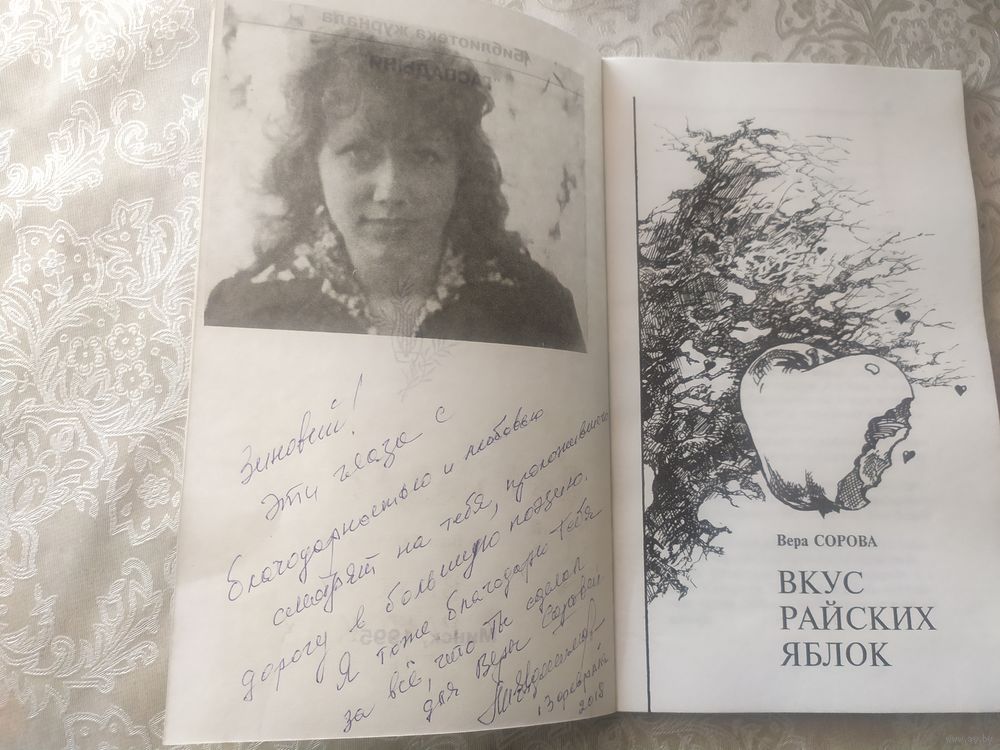 Библиотека журнала
Зиновий!
Эти глаза с
благодарностью и любовью
смотрят на тебя, проложившего
дорогу в большую поэзию.
Я тоже благодарю Тебя
за всё, что Ты сделал
для Веры Соровой.
13 февраля
2018
Минск 1995
Вера СОРОВА
ВКУС
РАЙСКИХ
ЯБЛОК